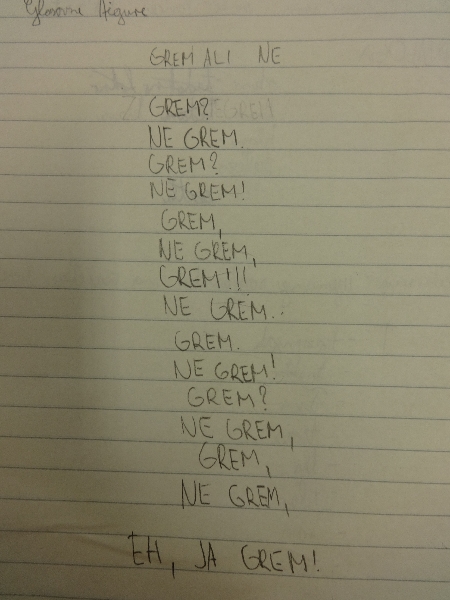 Glasovne figure
GREM ALI NE
GREM?
NE GREM.
GREM?
NE GREM!
GREM,
NE GREM,
GREM!!!
NE GREM..
GREM.
NE GREM!
GREM?
NE GREM,
GREM,
NE GREM,
EH, JA GREM!